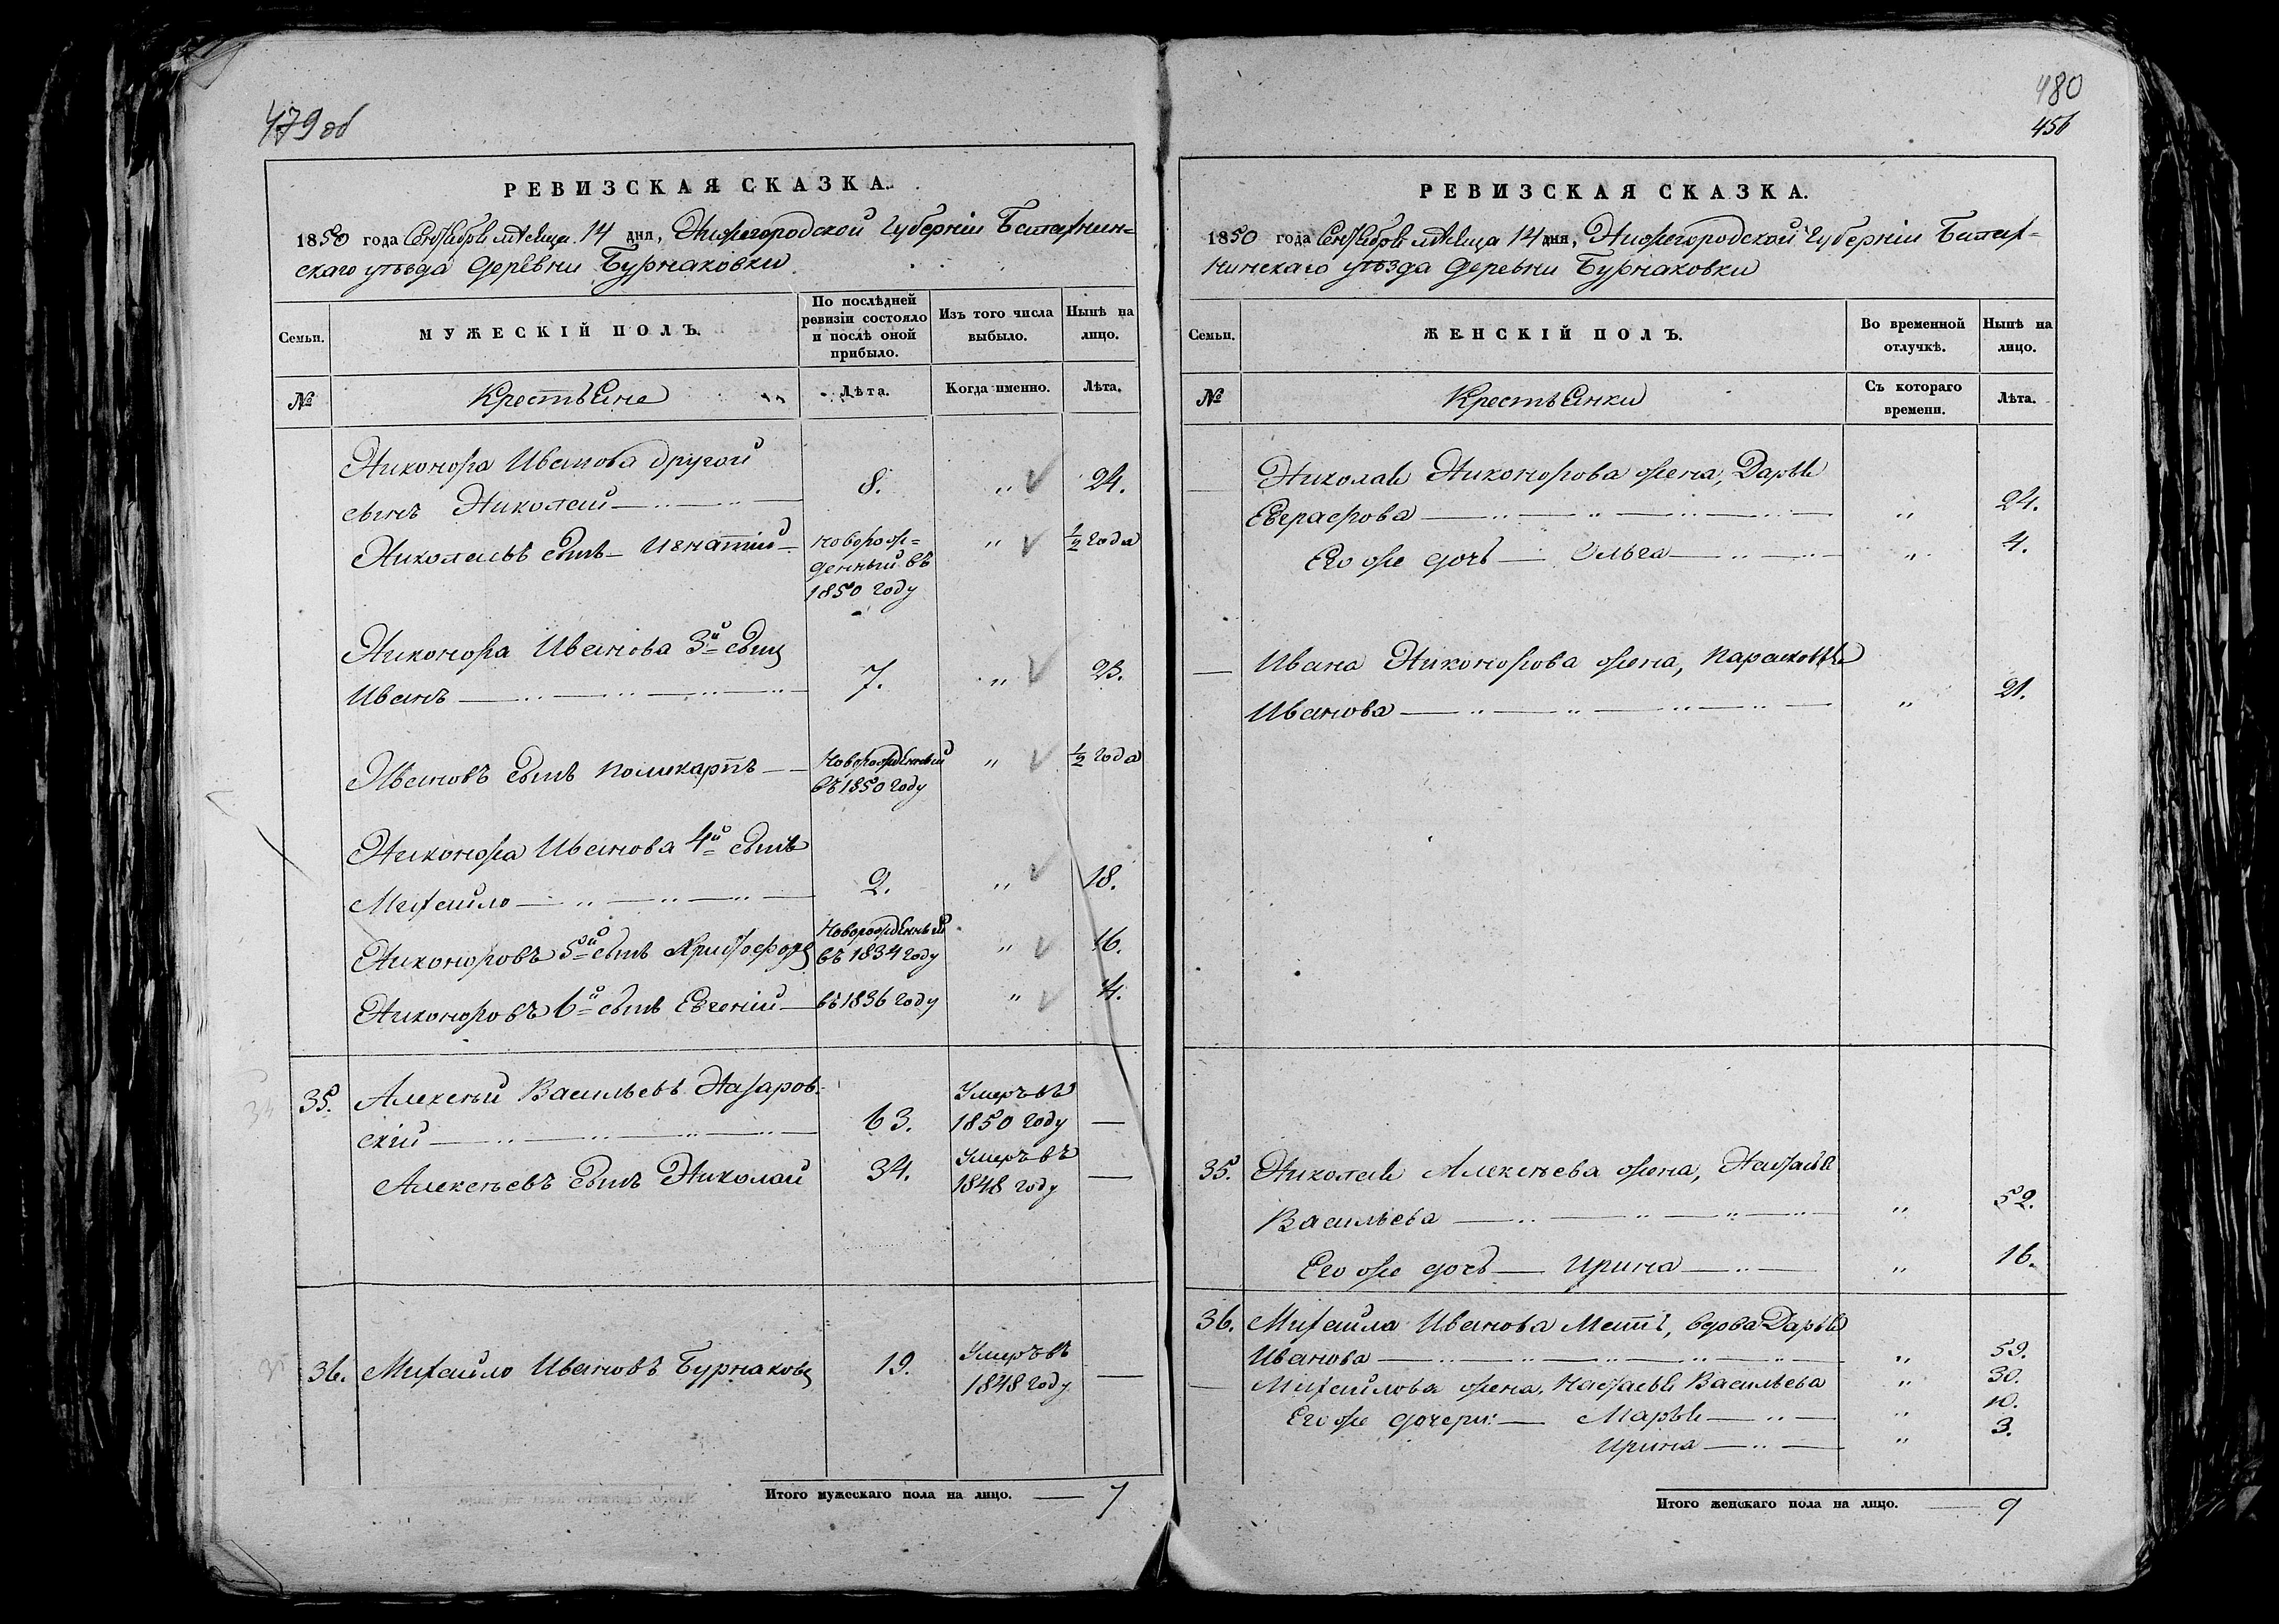 479 об
РЕВИЗСКАЯ СКАЗКА.
1850 года Сентября месяца 14 дня, Нижегородской Губерніи Балахнин=
скаго уѣзда Деревни Бурнаковки
Семьи.
МУЖЕСКІЙ ПОЛЪ.
По послѣдней
ревизіи состояло
и послѣ оной
прибыло.
Изъ того числа
выбыло.
Нынѣ на
лицо.
№
Крестьяне
Лѣта.
Когда именно.
Лѣта.
Никонора Иванова другой
сынъ Николай 8. " 24.
Николаевъ сынъ Игнатій новорож= " ½ года
денный въ
1850 году
Никонора Иванова 3й сынъ
Иванъ 7. " 23.
Ивановъ сынъ Поликарпъ Новорожденный " ½ года
въ 1850 году
Никонора Иванова 4й сынъ
Михайло 2. " 18.
Никоноровъ 5й сынъ Христофоръ Новорожденный
въ 1834 году " 16.
Никоноровъ 6й сынъ Евгеній въ 1836 году " 14.
35. Алексей Васильевъ Назаров-
скій 63. Умеръ въ
1850 году —
Алексѣевъ сынъ Николай 34. Умеръ въ
1848 году —
36. Михайло Ивановъ Бурнаковъ 19. Умеръ въ
1848 году —
Итого мужескаго пола на лицо. — 7
480
456
РЕВИЗСКАЯ СКАЗКА.
1850 года Сентября месяца 14 дня, Нижегородской Губерніи Балах-
нинскаго уѣзда Деревни Бурнаковки
Семьи.
ЖЕНСКІЙ ПОЛЪ.
Во временной
отлучкѣ.
Нынѣ на
лицо.
№
Крестьянки
Съ котораго
времени.
Лѣта.
Николая Никонорова жена, Дарья
Евграфова " 24.
Его же дочь — Ольга " 4.
Ивана Никонорова жена, Парасковья
Иванова " 21.
35. Николая Алексѣева жена, Наталья
Васильева " 52.
Его же дочь — Ирина " 16.
36. Михаила Иванова Мать, вдова Дарья
Иванова " 59.
Михайлова жена, Наталья Васильева " 30.
Его же дочери: — Марья " 10.
Ирина " 3.
Итого женскаго пола на лицо. — 9